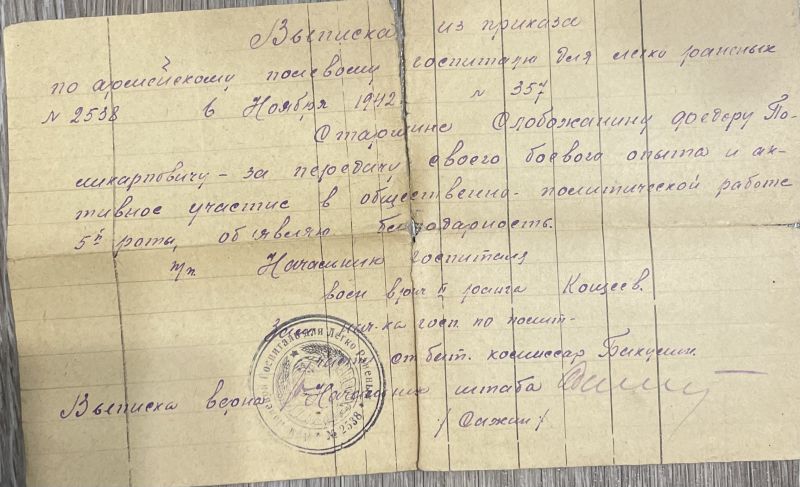 Выписка из приказа
по армейскому полевому госпиталю для легко раненых
№ 2538 6 Ноября 1942 № 357
Старшине Слобожанину Федору По-
ликарповичу – за передачу своего боевого опыта и ак-
тивное участие в общественно-политической работе
5й роты, объявляю благодарность.
п/п. Начальник госпиталя
воен врач II ранга Кощеев.
Зам. нач-ка госп. по полит-
части ст. бат. комиссар Бакулин.
Выписка верна: Начальник штаба
/Сажин/
Госпиталь для Легко Раненых № 2538